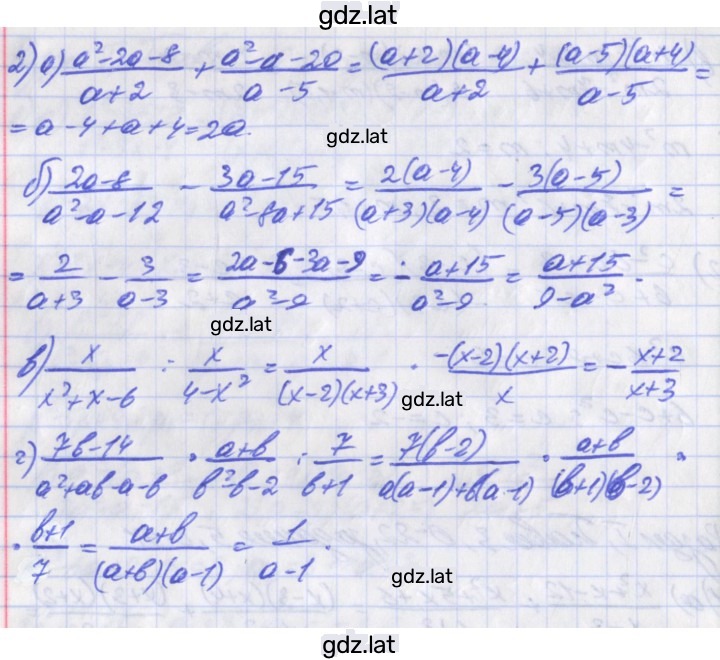 gdz.lat
2) а) (a²-2a-8)/(a+2) + (a²-a-20)/(a-5) = ((a+2)(a-4))/(a+2) + ((a-5)(a+4))/(a-5) =
= a-4+a+4=2a.
gdz.lat
б) (2a-8)/(a²-a-12) - (3a-15)/(a²8a+15) = (2(a-4))/((a+3)(a-4)) - (3(a-5))/((a-5)(a-3)) =
= 2/(a+3) - 3/(a-3) = (2a-6-3a-9)/(a²-9) = - (a+15)/(a²-9) = (a+15)/(9-a²).
gdz.lat
в) x/(x²+x-6) : x/(4-x²) = x/((x-2)(x+3)) · (-(x-2)(x+2))/x = - (x+2)/(x+3)
gdz.lat
г) (7b-14)/(a²+ab-a-b) · (a+b)/(b²-b-2) : 7/(b+1) = (7(b-2))/(a(a-1)+b(a-1)) · (a+b)/((b+1)(b-2)) ·
· (b+1)/7 = (a+b)/((a+b)(a-1)) = 1/(a-1).
gdz.lat
gdz.lat